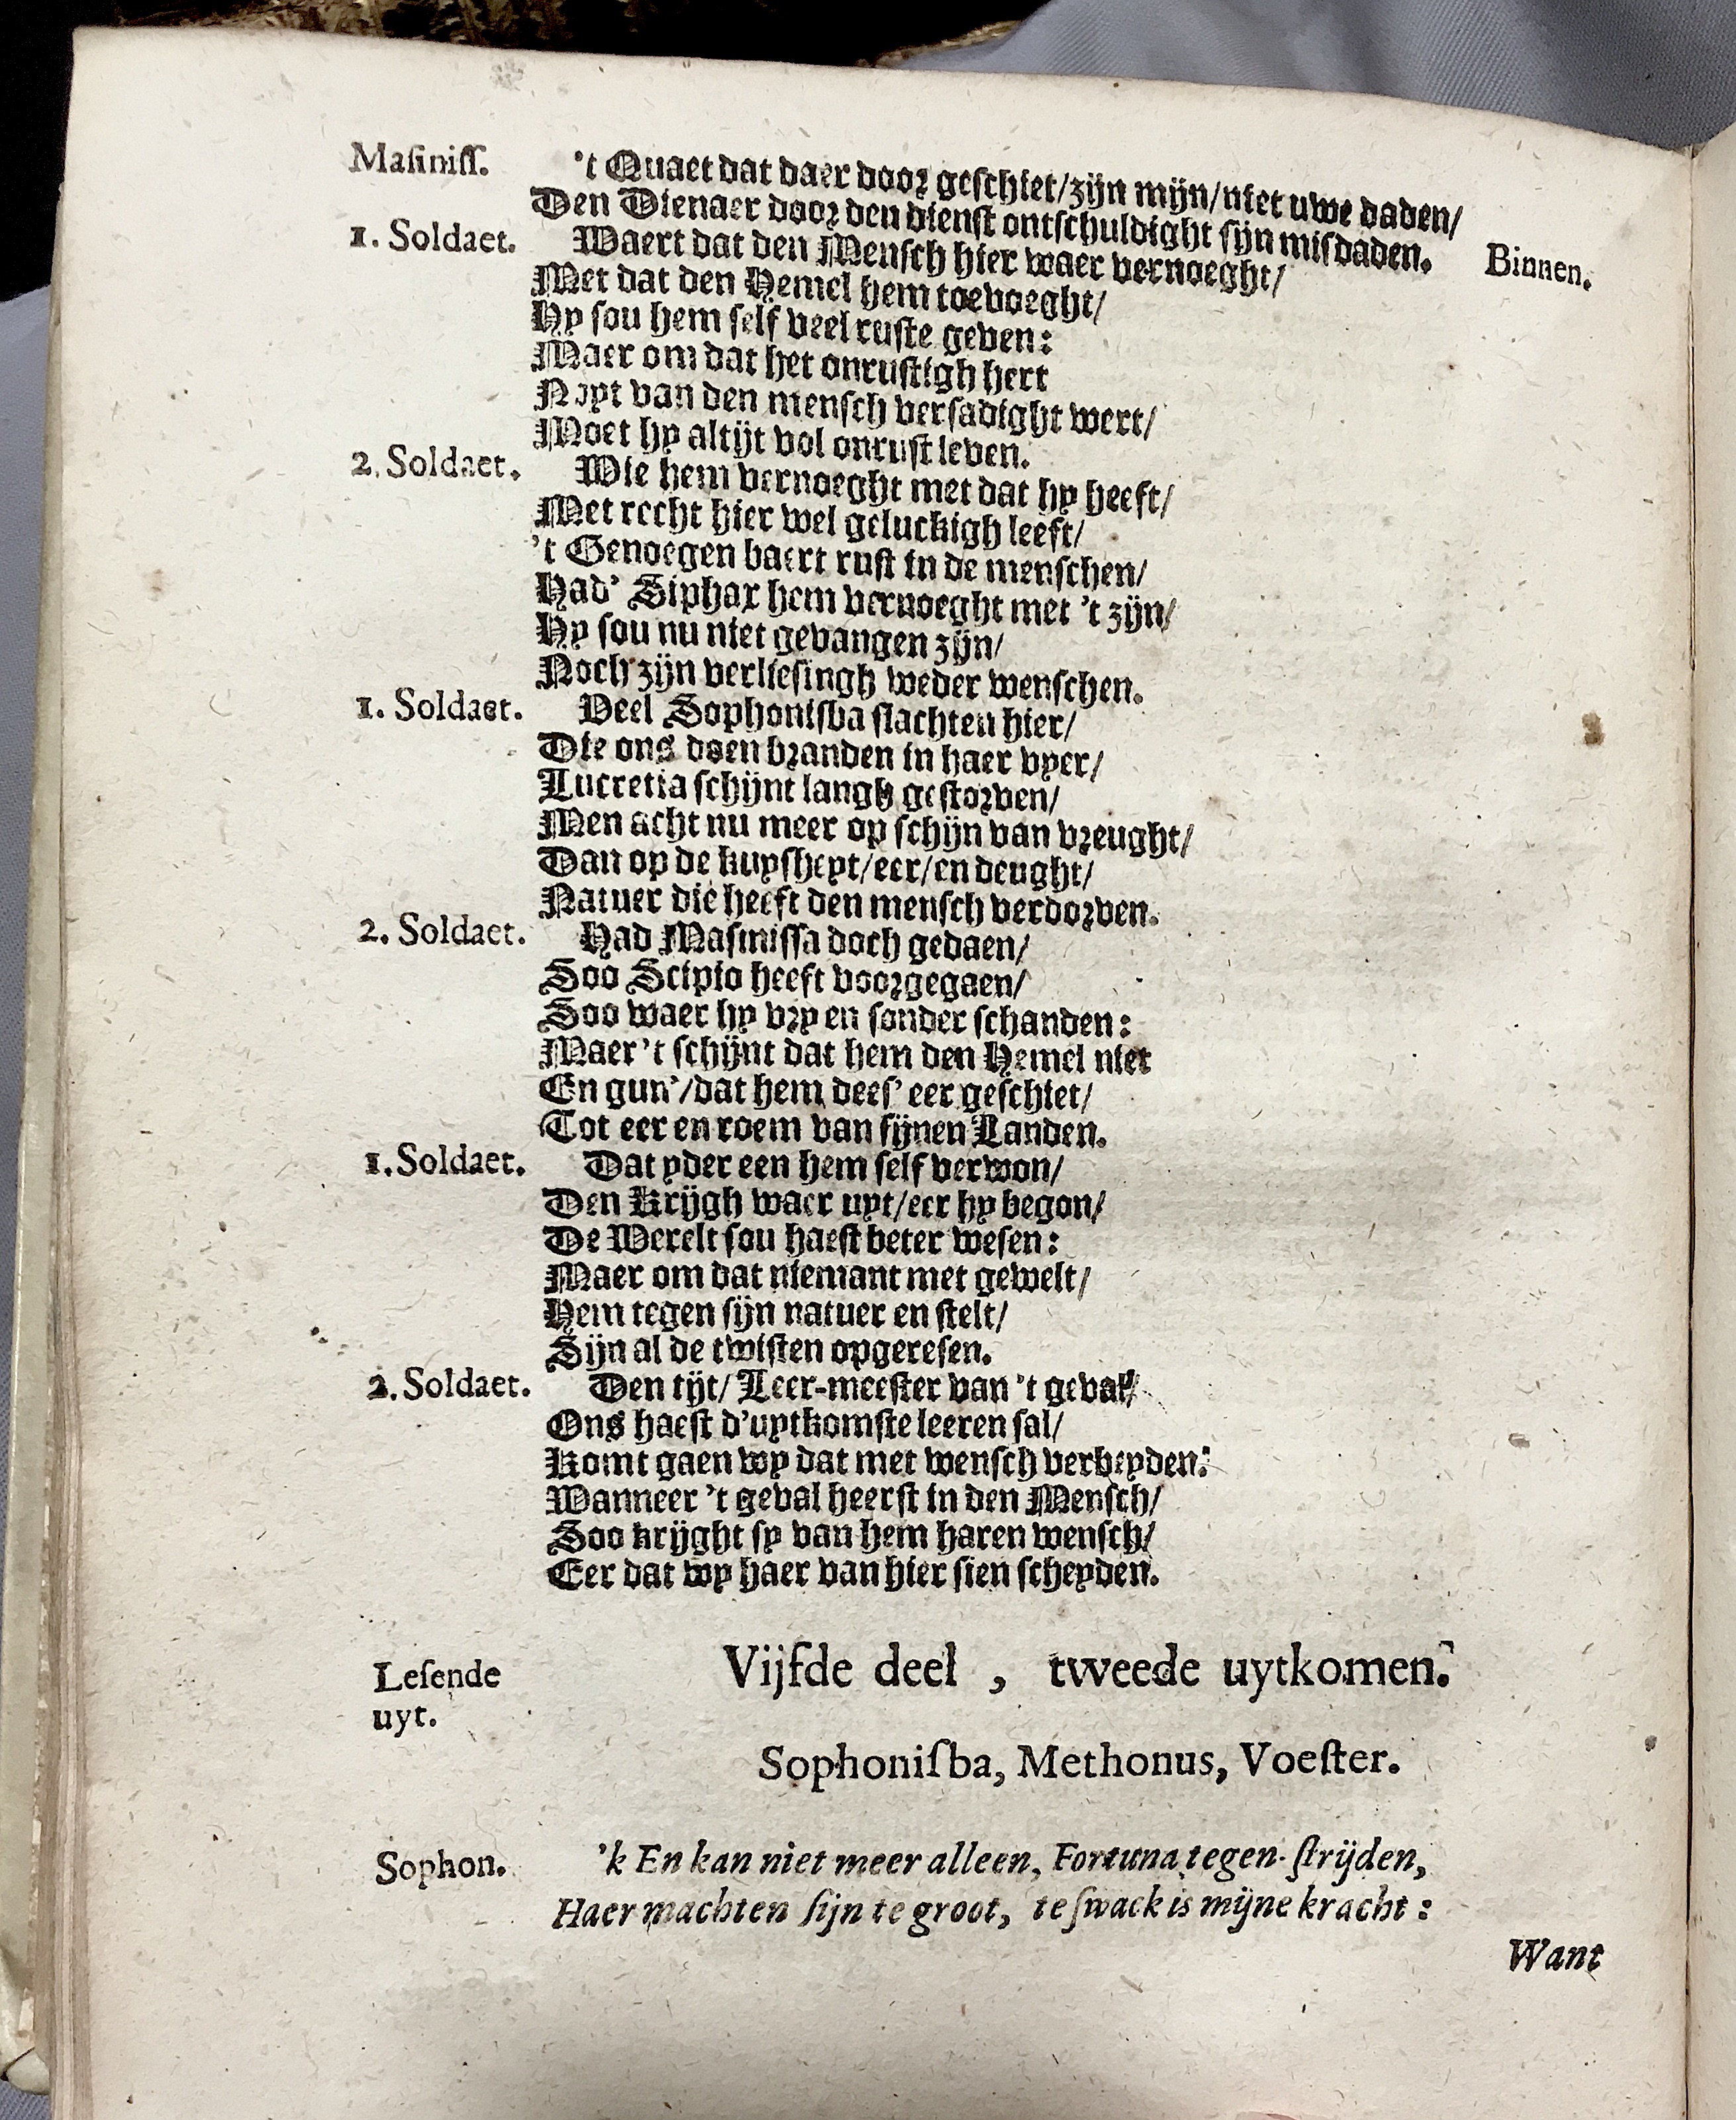 Masiniss. 't Quaet dat daer door geschiet/zijn mijn/niet uwe daden/
Den Dienaer door den dienst ontschuldight sijn misdaden. Binnen.
1. Soldaet. Waert dat den Mensch hier waer vernoeght/
Met dat den Hemel hem toevoeght/
Hy sou hem self veel ruste geven:
Maer om dat het onrustigh hert
Noyt van den mensch versadight wert/
Moet hy altijt vol onrust leven.
2. Soldaet. Wie hem vernoeght met dat hy heeft/
Met recht hier wel geluckigh leeft/
't Genoegen baert rust in de menschen/
Had' Siphax hem vernoeght met 't zijn/
Hy sou nu niet gevangen zijn/
Noch zijn verliesingh weder wenschen.
1. Soldaet. Veel Sophonisba slachten hier/
Die ons doen branden in haer vyer/
Lucretia schijnt langh gestorven/
Men acht nu meer op schijn van vreught/
Dan op de kuysheyt/eer/en deught/
Natuer die heeft den mensch verdorven.
2. Soldaet. Had Masinissa doch gedaen/
Soo Scipio heeft voorgegaen/
Soo waer hy vry en sonder schanden:
Maer 't schijnt dat hem den Hemel niet
En gun'/dat hem dees' eer geschiet/
Tot eer en roem van sijnen Landen.
1. Soldaet. Dat yder een hem self verwon/
Den Krijgh waer uyt/eer hy begon/
De Werelt sou haest beter wesen:
Maer om dat niemant met gewelt/
Hem tegen sijn natuer en stelt/
Sijn al de twisten opgeresen.
2. Soldaet. Den tijt/ Leer-meester van 't geval/
Ons haest d'uytkomste leeren sal/
Komt gaen wy dat met wensch verbeyden:
Wanneer 't geval heerst in den Mensch/
Soo krijght sy van hem haren wensch/
Eer dat wy haer van hier sien scheyden.
Vijfde deel, tweede uytkomen.
Lesende
uyt.
Sophonisba, Methonus, Voester.
Sophon. 'k En kan niet meer alleen, Fortuna tegen-strijden,
Haer machten sijn te groot, te swack is mijne kracht:
Want